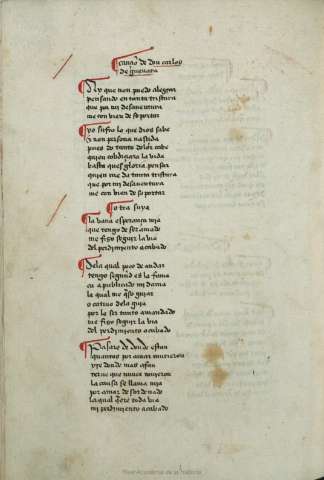 cançió de don carlos
de gueuara
Ay que non puedo alegrar
pensando en tanta tristura
que por mi desauentura
me conuiene de soportar
yo sufro lo que dios sabe
y non persona nasçida
pues do tanto dolor cabe
quien la vida
basta que es gloria pensar
quien me da tanta tristura
que por mi desauentura
me conuiene de soportar
otra suya
La vana esperança mia
que tengo de ser amado
me fizo seguir la via
del perdimiento acabado
Dela qual poco de andar
tengo segund es la fama
publicando mi dama
la qual me quiso guiar
o catiuo dela guia
por le ser tanto
me fizo seguir la via
del perdimiento acabado
Pasare de donde estan
quantos por amar murieron
yre donde mas
que nunca
la causa se llama mia
por amar desordenado
la qual toda via
mi perdimiento acabado
Real Academia de la Historia